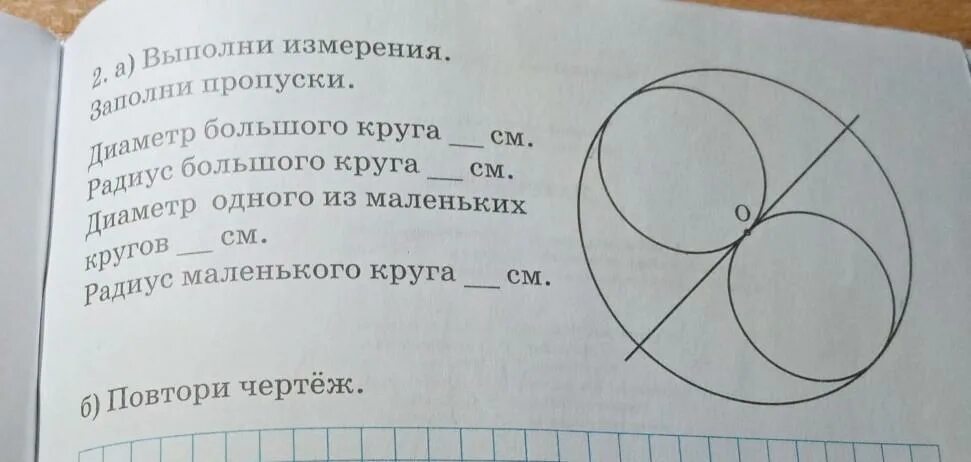 2. а) Выполни измерения.
Заполни пропуски.
Диаметр большого круга ___ см.
Радиус большого круга ___ см.
Диаметр одного из маленьких
кругов ___ см.
Радиус маленького круга ___ см.
О
б) Повтори чертёж.